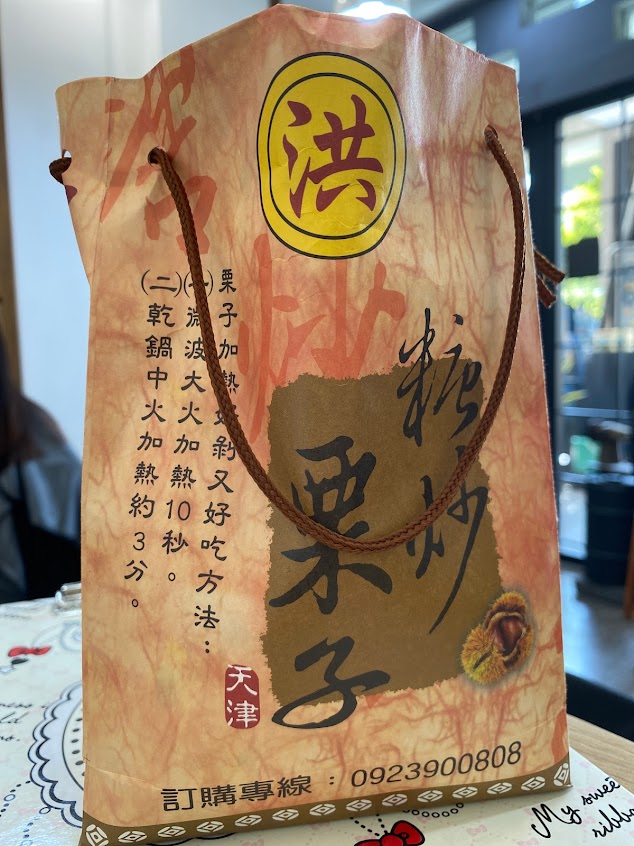 洪
糖炒
栗子
天津
栗子加熱好剝又好吃方法：
(一)微波大火加熱10秒。
(二)乾鍋中火加熱約3分。
訂購專線：0923900808
炒
My swee
ribb